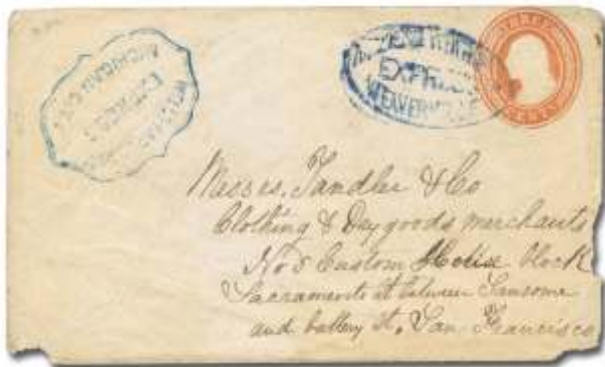 THREE
CENTS
EXPRESS
WEAVERVILLE
EXPRESS
MICHIGAN
Messrs. Tandler & Co
Clothing & Dry goods merchants
No 5 Custom House block
Sacramento st between Sansome
and battery st, San Francisco